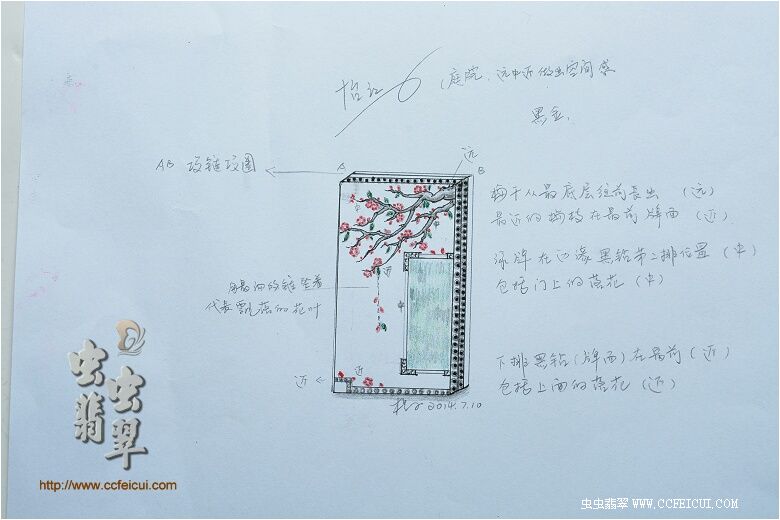 怡红
(庭院、远中近做出空间感
黑金.
AB 扣链扣圈
A
远
B
梅干从最底层往前长出 (远)
最近的梅枝在最前牌面 (近)
绿牌在边缘黑钻第二排位置 (中)
包括门上的落花 (中)
近
中
用最细的链坠着
代表飘落的花叶
下排黑钻(牌面)在最前 (近)
包括上面的落花 (近)
近
近
2014.7.10
虫虫翡翠
http://www.ccfeicui.com
虫虫翡翠 WWW.CCFEICUI.COM